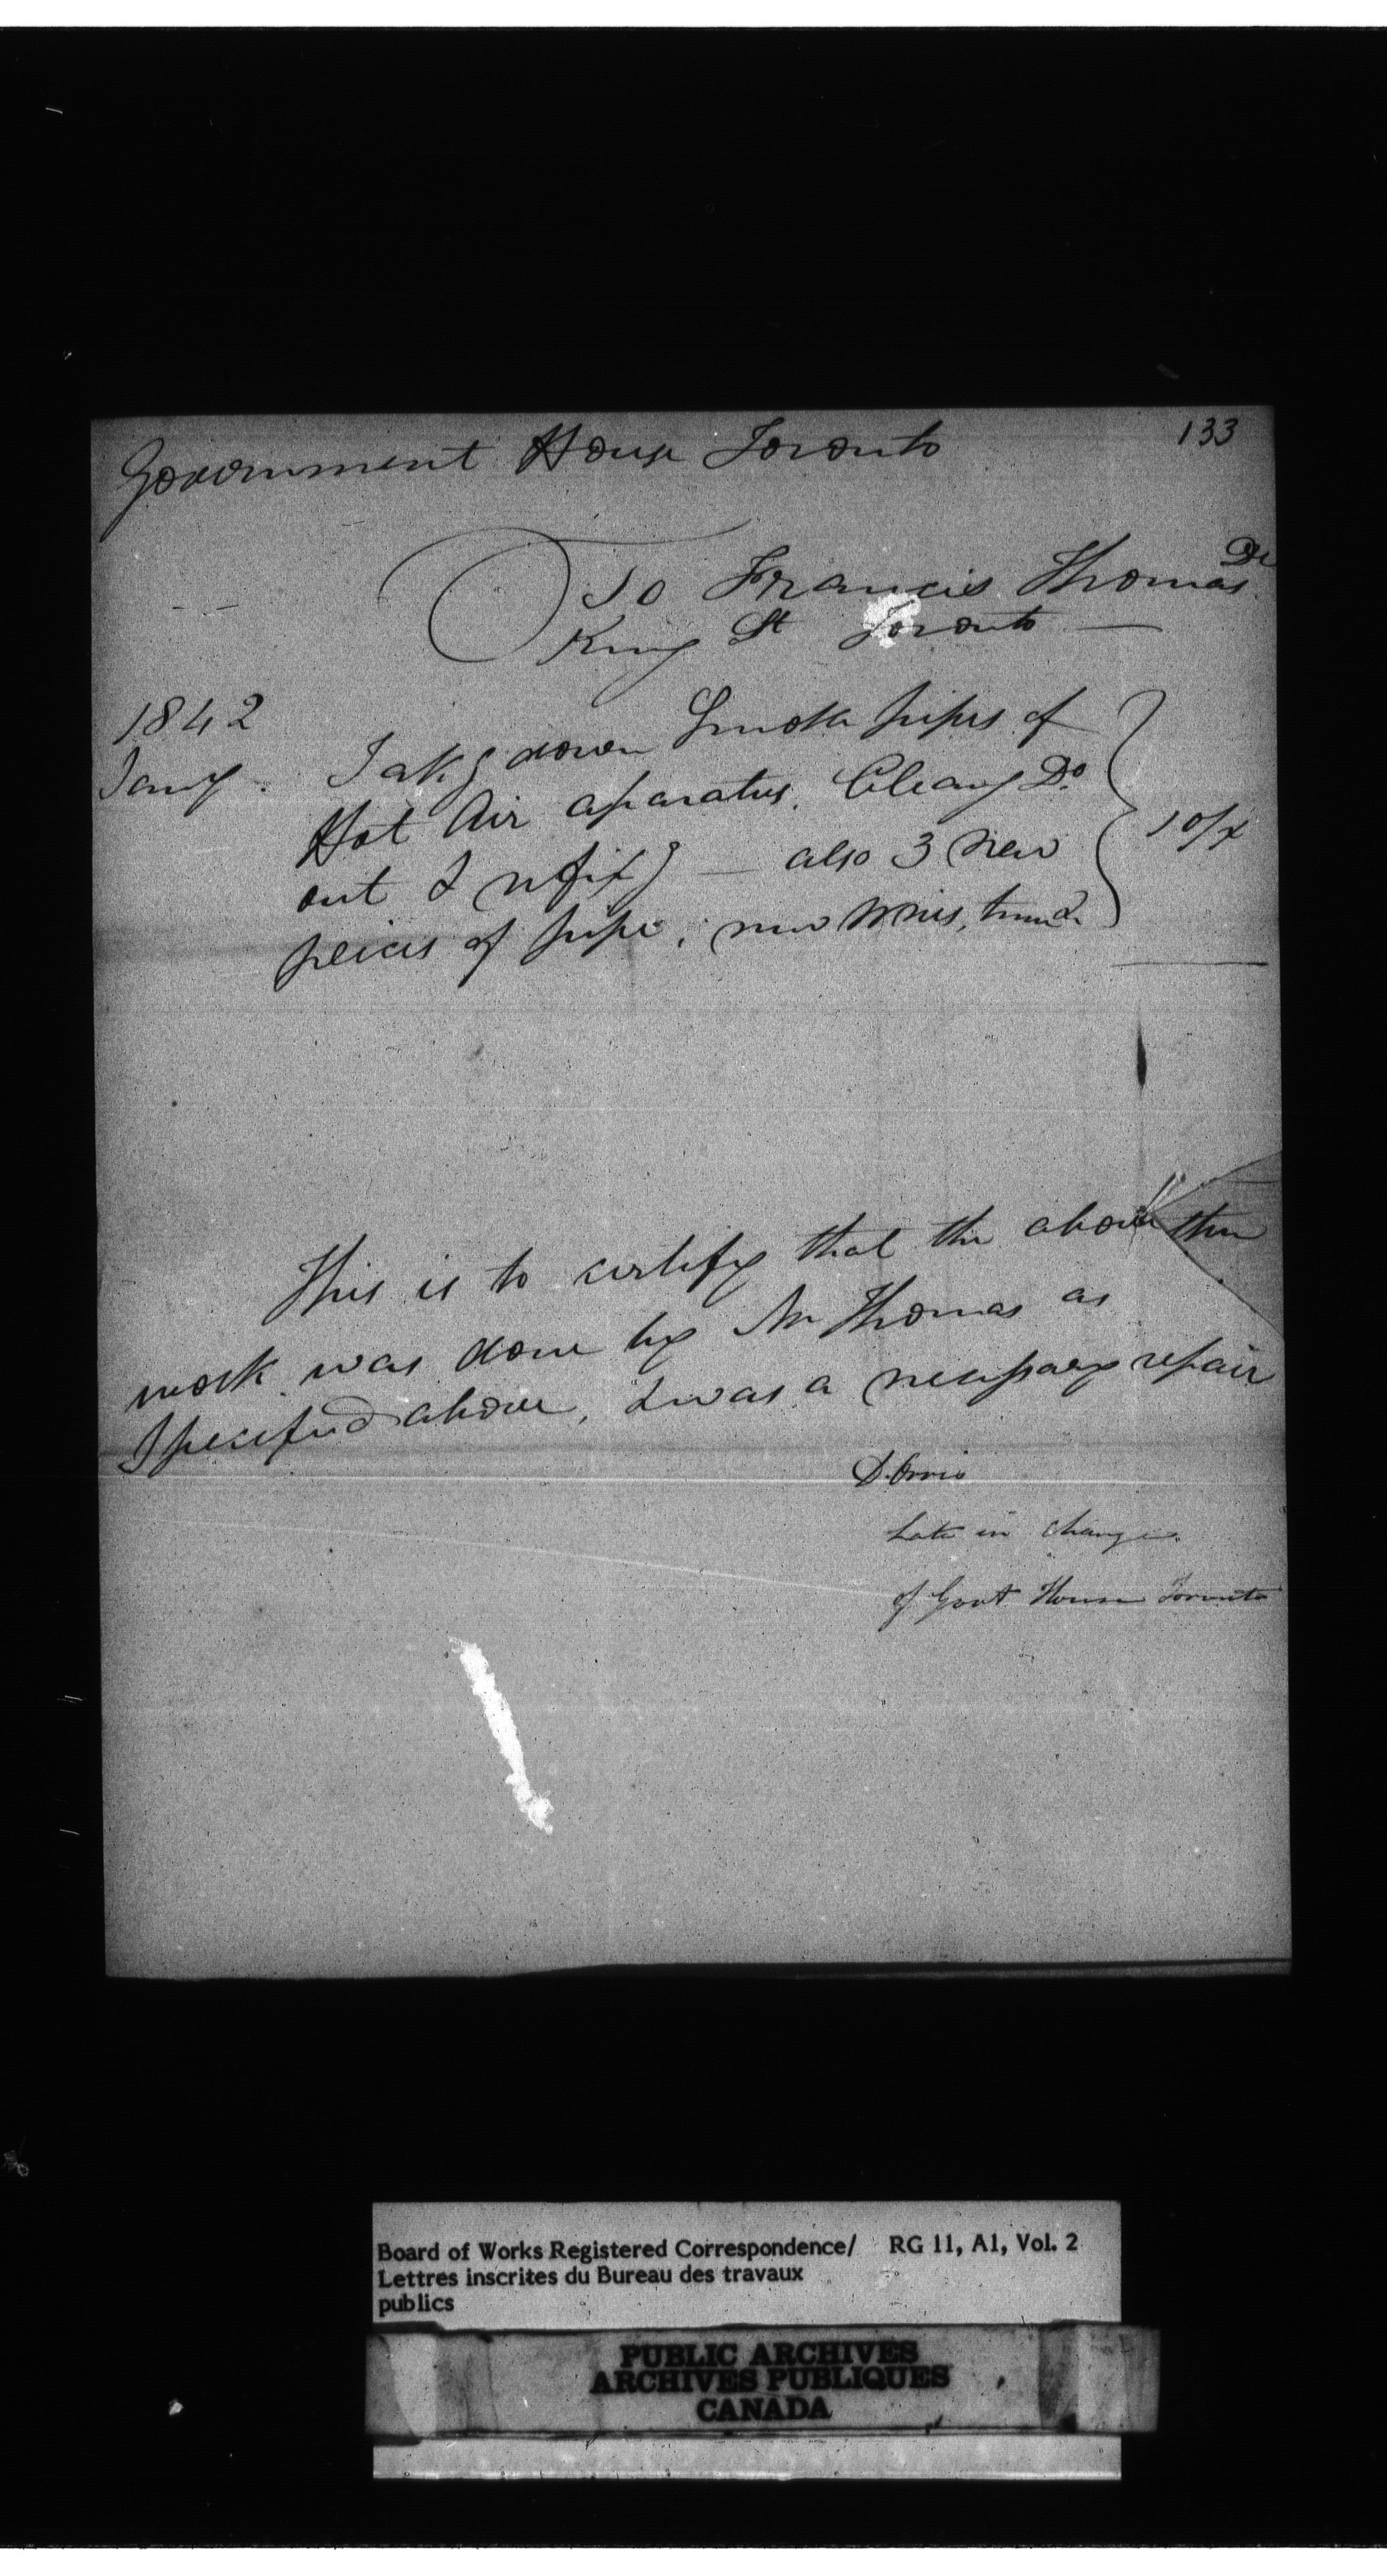 133
Government House Toronto
Dr
To Francis Thomas
King St Toronto
1842
Jany. Takg down Smoke pipes of
Hot Air aparatus. Cleang Do
out & refixg — also 3 new
peices of pipe, new wires,
10/
This is to certify that the above
work was done by Mr Thomas as
Specified above, & was a necessary repair
D. Orris
Late in charge
of Govt House Toronto
Board of Works Registered Correspondence/ RG 11, A1, Vol. 2
Lettres inscrites du Bureau des travaux
publics
PUBLIC ARCHIVES
ARCHIVES PUBLIQUES
CANADA